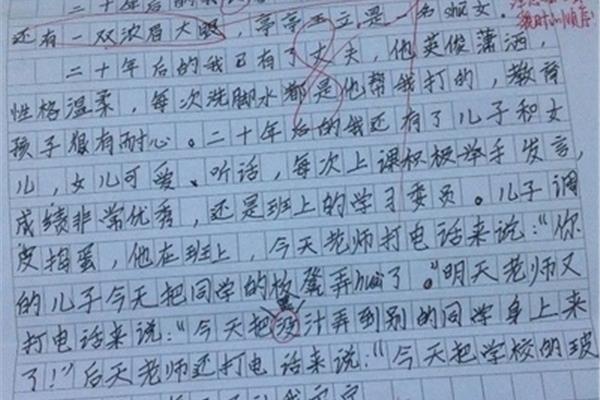 二十年后的我
还有一双浓眉大眼，亭亭玉立，是一名淑女。
二十年后的我已有了丈夫，他英俊潇洒，
性格温柔，每次洗脚水都是他帮我打的，教育
孩子很有耐心。二十年后的我还有了儿子和女
儿，女儿可爱、听话，每次上课积极举手发言，
成绩非常优秀，还是班上的学习委员。儿子调
皮捣蛋，他在班上，今天老师打电话来说：“你
的儿子今天把同学的板凳弄了。”明天老师又
打电话来说：“今天把汁弄到别的同学身上来
了！”后天老师还打电话来说：“今天把学校的玻